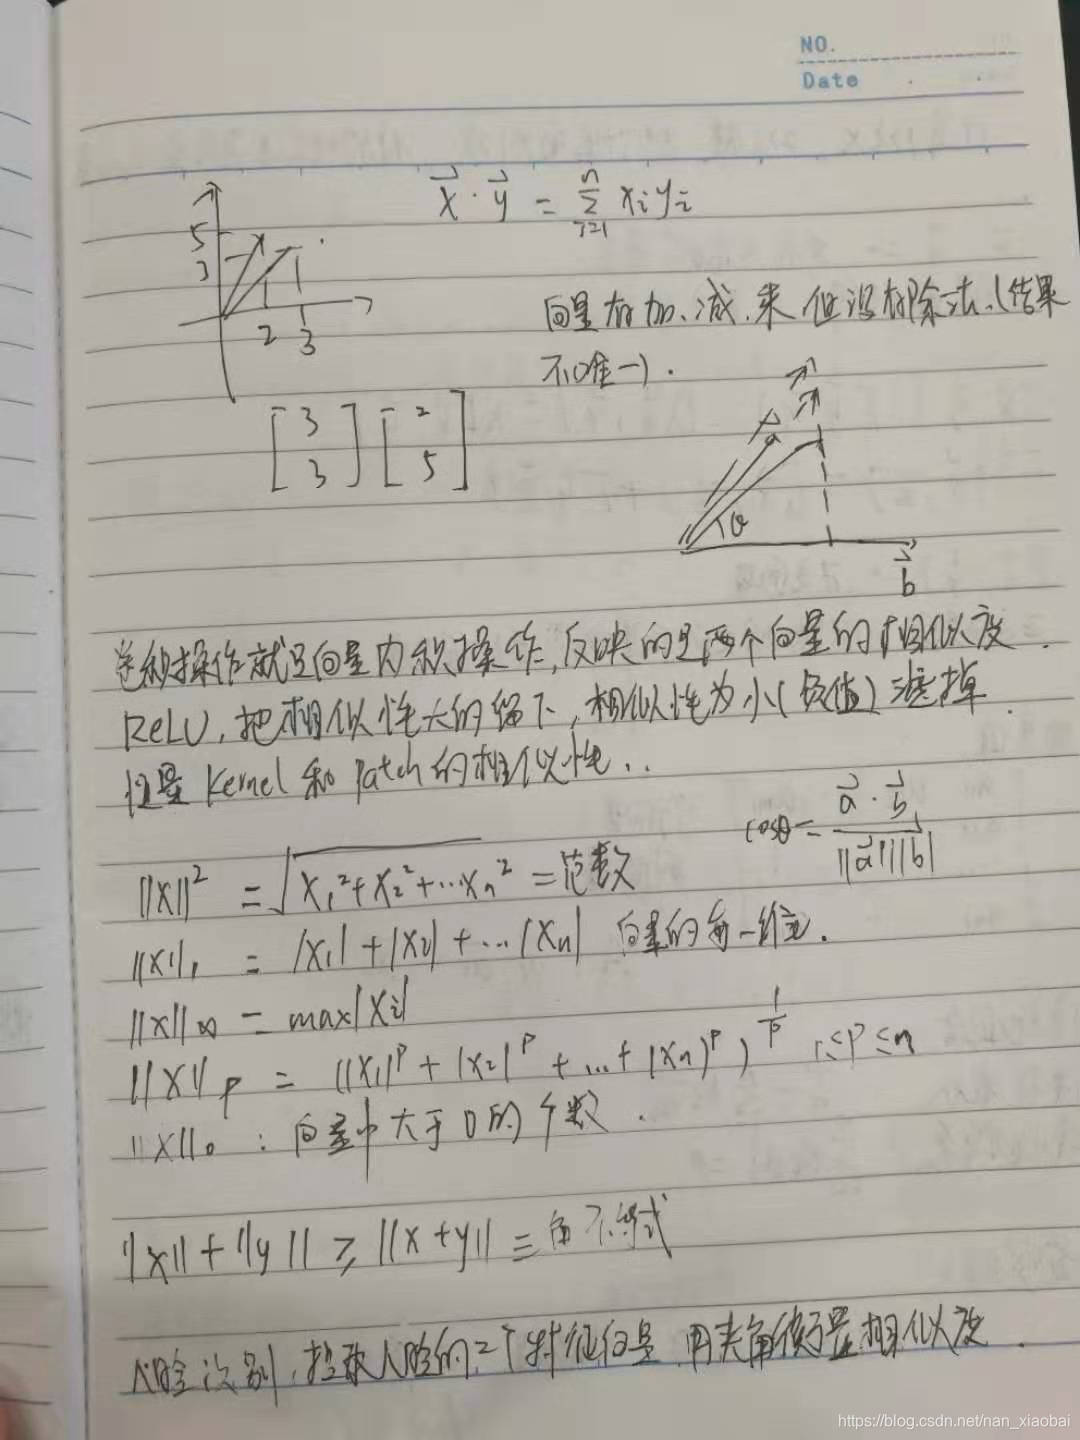 NO.
Date
x⃗ · y⃗ = Σ_{i=1}^{n} x_i y_i
5
3
2
3
向量有加、减、乘 但没有除法、(结果
不唯一).
[3 3] [2 5]
a
θ
b⃗
卷积操作就是向量内积操作,反映的是两个向量的相似度.
ReLU,把相似性大的留下,相似性为小(负值)滤掉.
衡量 Kernel 和 patch 的相似性..
cosθ = a⃗·b⃗ / ||a⃗|| ||b|
||x||² = √(x₁²+x₂²+…xₙ²) = 范数
||x||₁ = |x₁|+|x₂|+…|xₙ| 向量的每一维.
||x||∞ = max|xᵢ|
||x||p = (|x₁|^p + |x₂|^p + … + |xₙ)^p)^{1/p} 1≤p≤n
||x||₀ : 向量中大于0的个数.
||x|| + ||y|| ≥ ||x+y|| 三角不等式
人脸识别,提取人脸的2个特征向量 用夹角衡量相似度.
https://blog.csdn.net/nan_xiaobai